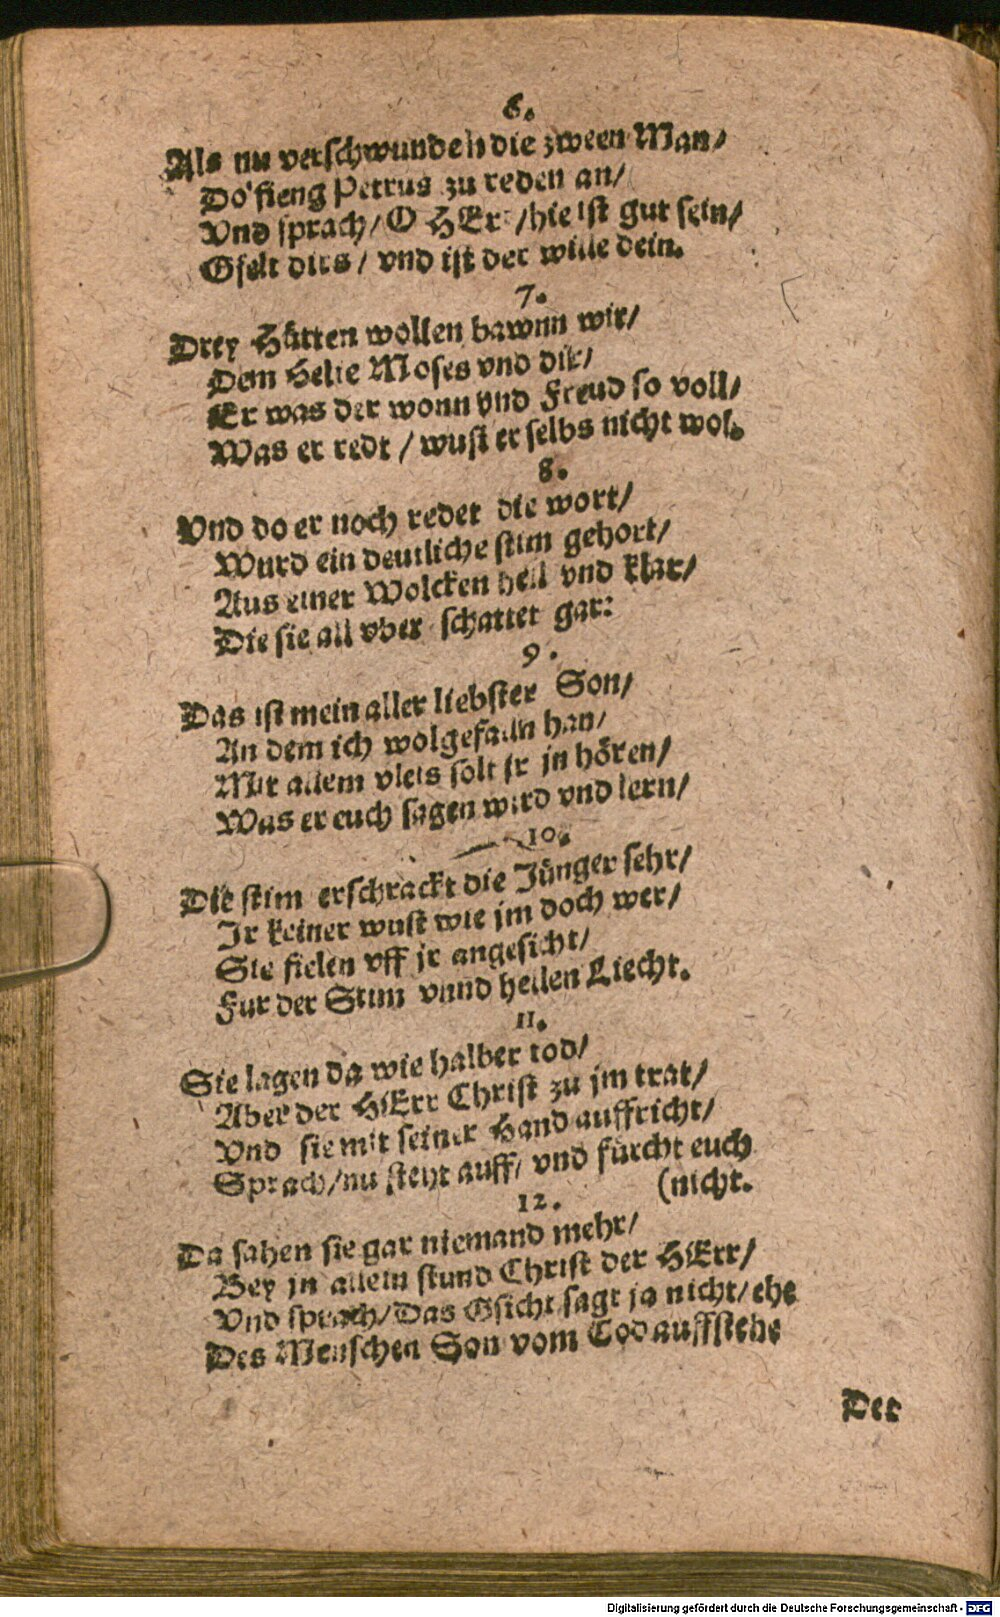 6.
Als nu verschwunden die zween Man/
Do fieng Petrus zu reden an/
Vnd sprach/ O HErr/ hie ist gut sein/
Gfelt dirs/ vnd ist der wille dein.
7.
Drey Hütten wollen bawnn wir/
Dem Helie Moses vnd dir/
Er was der wonn vnd Freud so voll/
Was er redt/ wust er selbs nicht wol.
8.
Vnd do er noch redet die wort/
Wurd ein deutliche stim gehort/
Aus einer Wolcken hell vnd klar/
Die sie all vber schattet gar:
9.
Das ist mein aller liebster Son/
An dem ich wolgefalln han/
Mit allem vleis solt jr jn hören/
Was er euch sagen wird vnd lern/
10.
Die stim erschrackt die Jünger sehr/
Jr keiner wust wie jm doch wer/
Sie fielen vff jr angesicht/
Fur der Stim vnnd hellen Liecht.
11.
Sie lagen da wie halber tod/
Aber der HErr Christ zu jm trat/
Vnd sie mit seiner Hand auffricht/
Sprach/ nu steht auff/ vnd fürcht euch
(nicht.
12.
Da sahen sie gar niemand mehr/
Bey jn allein stund Christ der HErr/
Vnd sprach/ Das Gsicht sagt ja nicht/ ehe
Des Menschen Son vom Tod auffstehe
Der
Digitalisierung gefördert durch die Deutsche Forschungsgemeinschaft - DFG